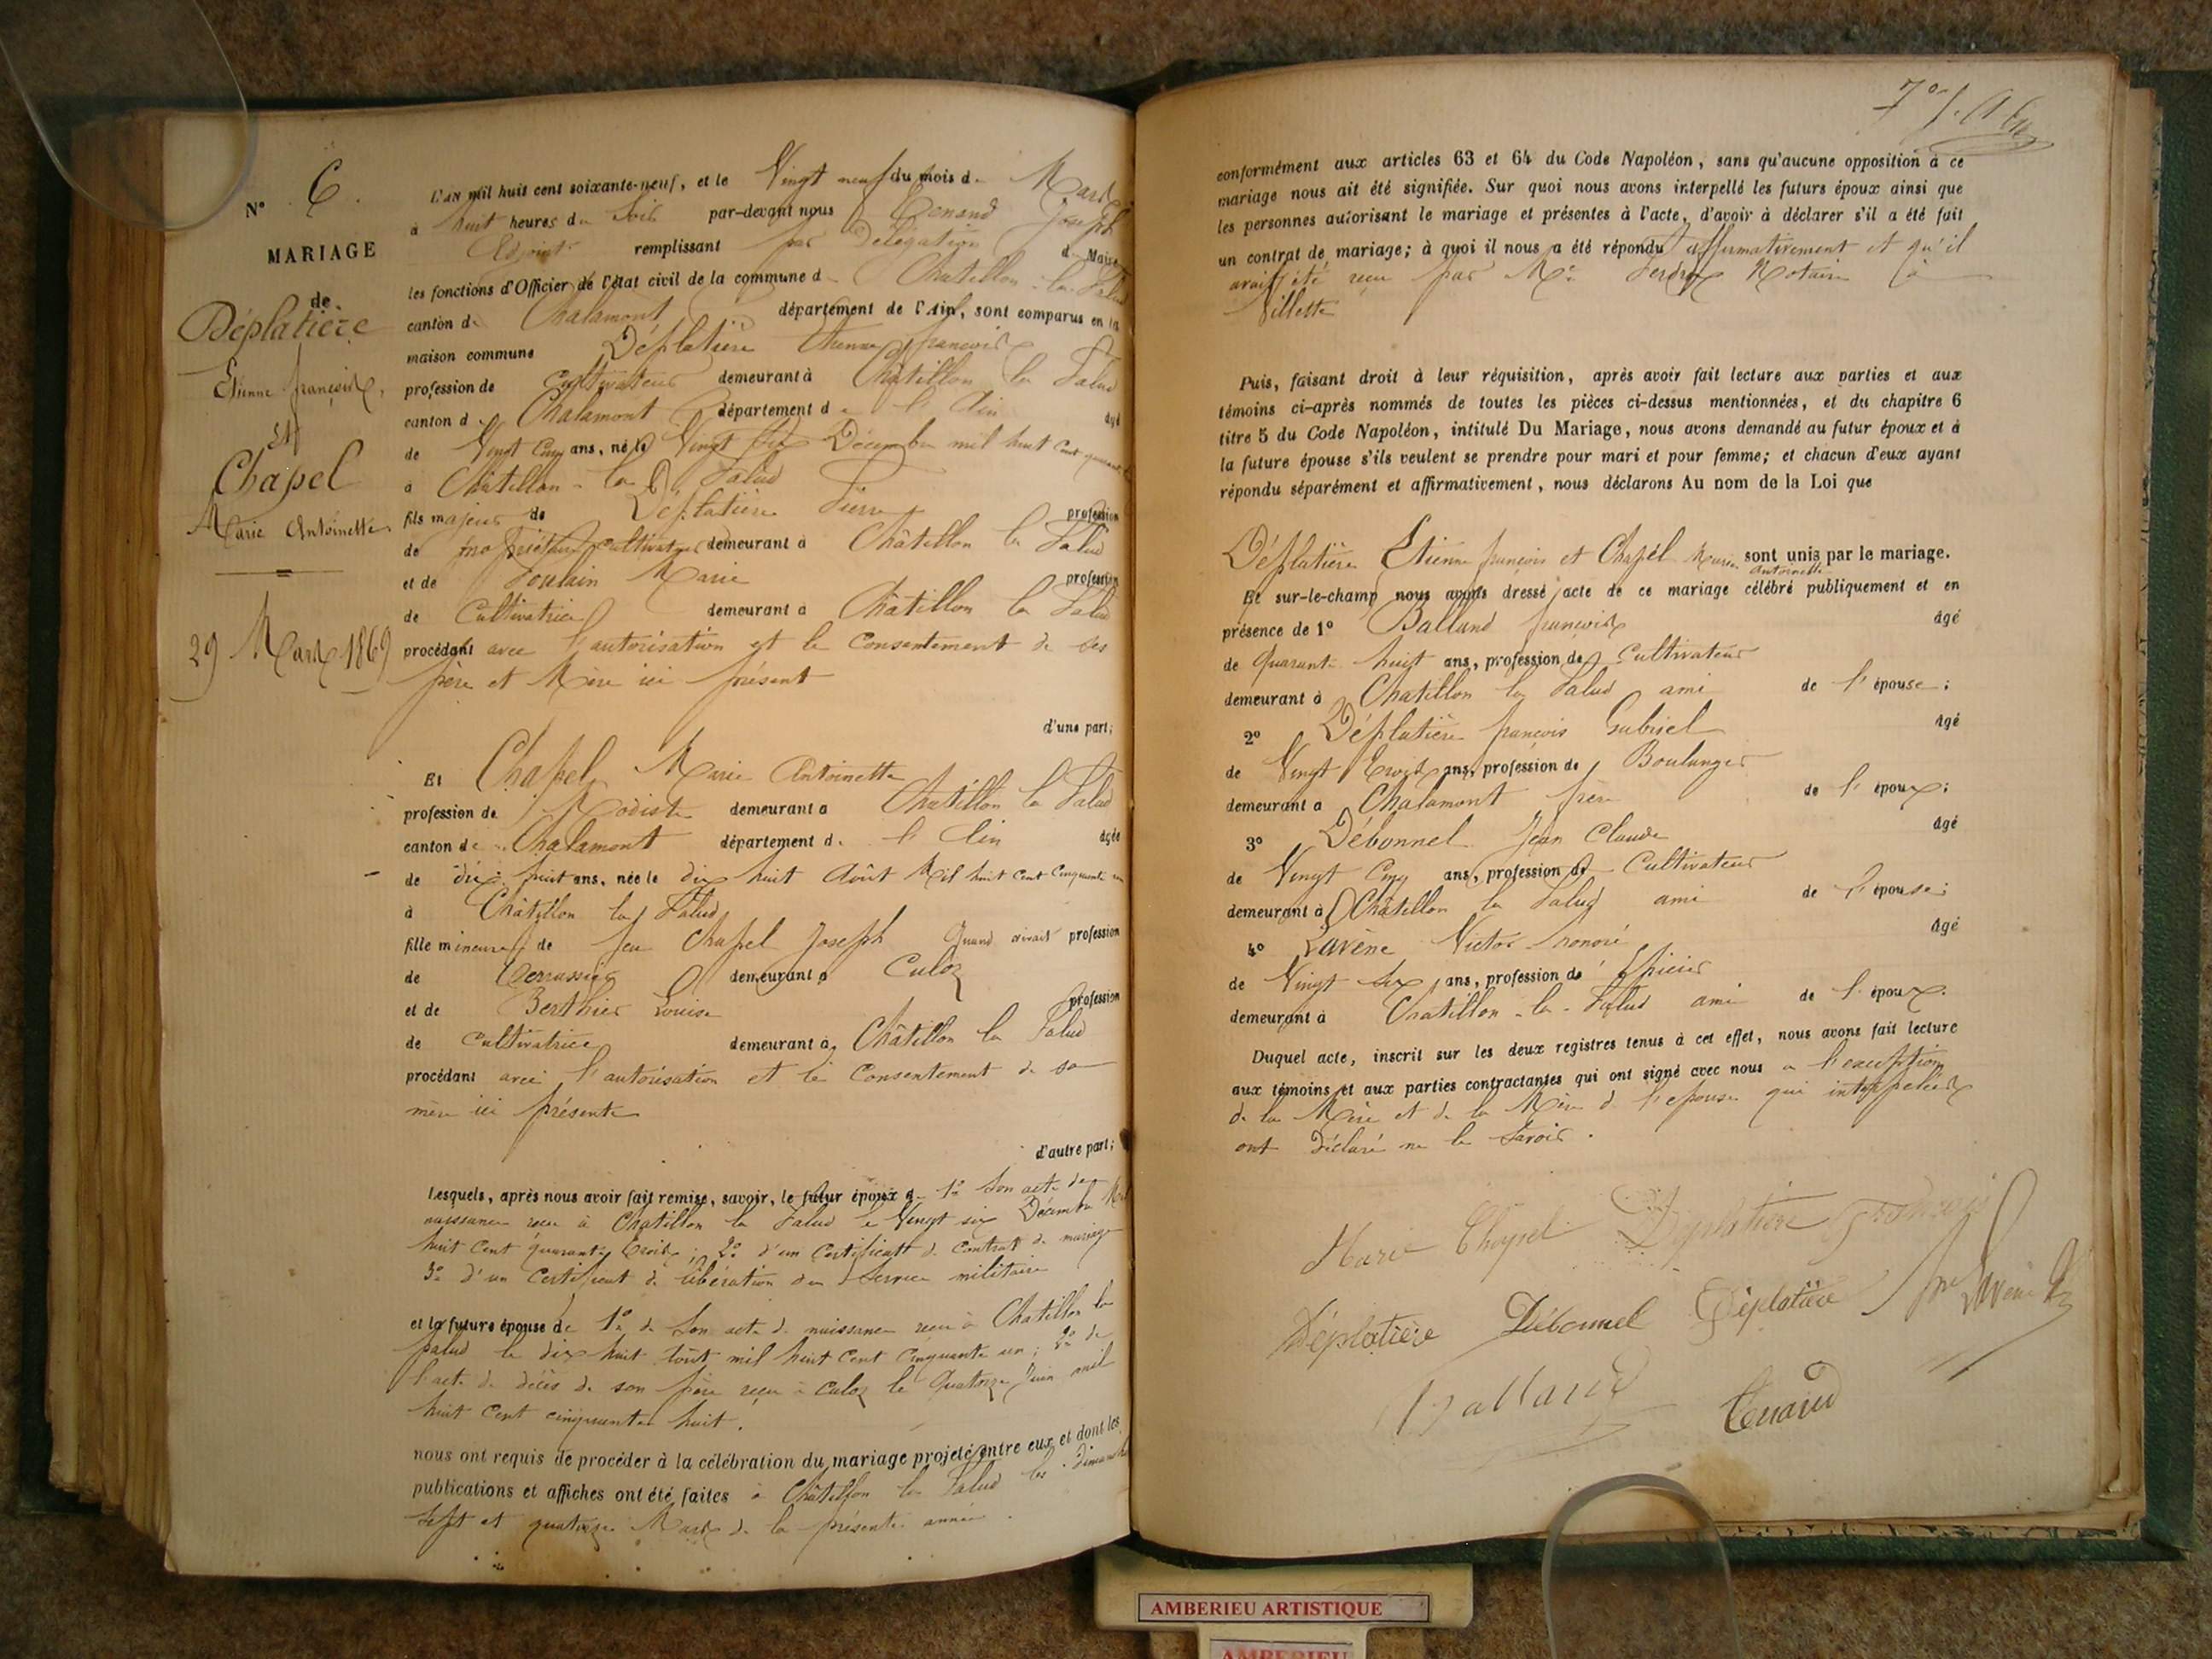 N° 6.
MARIAGE
de
Déplatière
Etienne françois,
Et
Chapel
Marie Antoinette.
29 Mars 1869
L'an mil huit cent soixante-neuf, et le Vingt neuf du mois de Mars
à huit heures du Soir par-devant nous Joseph
Adjoint remplissant par Délégation d Maire
les fonctions d'Officier de l'état civil de la commune d Chatillon-la-Palud
canton de Chalamont département de l'Ain, sont comparus en la
maison commune Déplatière Etienne françois
profession de Cultivateur demeurant à Châtillon la Palud
canton d. Chalamont département de l'Ain âgé
de Vingt Cinq ans, né le Vingt Six Décembre mil huit Cent
à Châtillon-la Palud
fils majeur de Déplatière Pierre profession
de propriétaire cultivateur demeurant à Châtillon la Palud
et de Poulain Marie profession
de Cultivatrice demeurant à Châtillon la Palud
procédant avec l'autorisation et le Consentement de ses
père et Mère ici présent
d'une part;
Et Chapel Marie Antoinette
profession de Modiste demeurant à Chatillon la Palud
canton de Chalamont département d. l'Ain âgée
de dix huit ans, née le dix huit Août Mil huit Cent Cinquante un
à Châtillon la Palud
fille mineure de feu Chapel Joseph Quand vivait profession
de Terrassier demeurant à Culoz
et de Berthier Louise profession
de Cultivatrice demeurant à Châtillon la Palud
procédant avec l'autorisation et le Consentement de sa
mère ici présente
d'autre part;
Lesquels, après nous avoir fait remise, savoir, le futur époux de 1° Son acte de
naissance reçu à Chatillon la Palud le Vingt six Décembre Mil
huit Cent quarante trois; 2° d'un Certificat de Contrat de mariage
3° d'un Certificat de libération du Service militaire
et la future épouse de 1° de Son acte de naissance reçu à Chatillon la
palud le dix huit août mil huit Cent Cinquante un; 2° de
l'acte de décès de son père reçu à Culoz le Quatorze Juin mil
huit Cent cinquante huit.
nous ont requis de procéder à la célébration du mariage projeté entre eux et dont les
publications et affiches ont été faites à Châtillon la Palud les dimanches
Sept et quatorze Mars de la présente année.
conformément aux articles 63 et 64 du Code Napoléon, sans qu'aucune opposition à ce
mariage nous ait été signifiée. Sur quoi nous avons interpellé les futurs époux ainsi que
les personnes autorisant le mariage et présentes à l'acte, d'avoir à déclarer s'il a été fait
un contrat de mariage; à quoi il nous a été répondu affirmativement et qu'il
avait été reçu par Me Notaire à
Villette
Puis, faisant droit à leur réquisition, après avoir fait lecture aux parties et aux
témoins ci-après nommés de toutes les pièces ci-dessus mentionnées, et du chapitre 6
titre 5 du Code Napoléon, intitulé Du Mariage, nous avons demandé au futur époux et à
la future épouse s'ils veulent se prendre pour mari et pour femme; et chacun d'eux ayant
répondu séparément et affirmativement, nous déclarons Au nom de la Loi que
Déplatière Etienne françois et Chapel Marie Antoinette sont unis par le mariage.
Et sur-le-champ nous avons dressé acte de ce mariage célébré publiquement et en
présence de 1° Balland françois âgé
de Quarante huit ans, profession de Cultivateur
demeurant à Chatillon la Palud ami de l'épouse;
2° Déplatière françois Gabriel âgé
de Vingt trois ans, profession de Boulanger
demeurant à Chalamont frère de l'époux;
3° Débonnel Jean Claude âgé
de Vingt Cinq ans, profession de Cultivateur
demeurant à Châtillon la Palud ami de l'épouse;
4° Lavène Victor honoré âgé
de Vingt Six ans, profession de Epicier
demeurant à Chatillon-la-Palud ami de l'époux.
Duquel acte, inscrit sur les deux registres tenus à cet effet, nous avons fait lecture
aux témoins et aux parties contractantes qui ont signé avec nous a l'exception
de la Mère et de la Mère de l'épouse qui interpellés
ont Déclaré ne le Savoir.
Marie Chapel Déplatière françois
Déplatière Débonnel Déplatière
Balland
AMBERIEU ARTISTIQUE
AMBERIEU